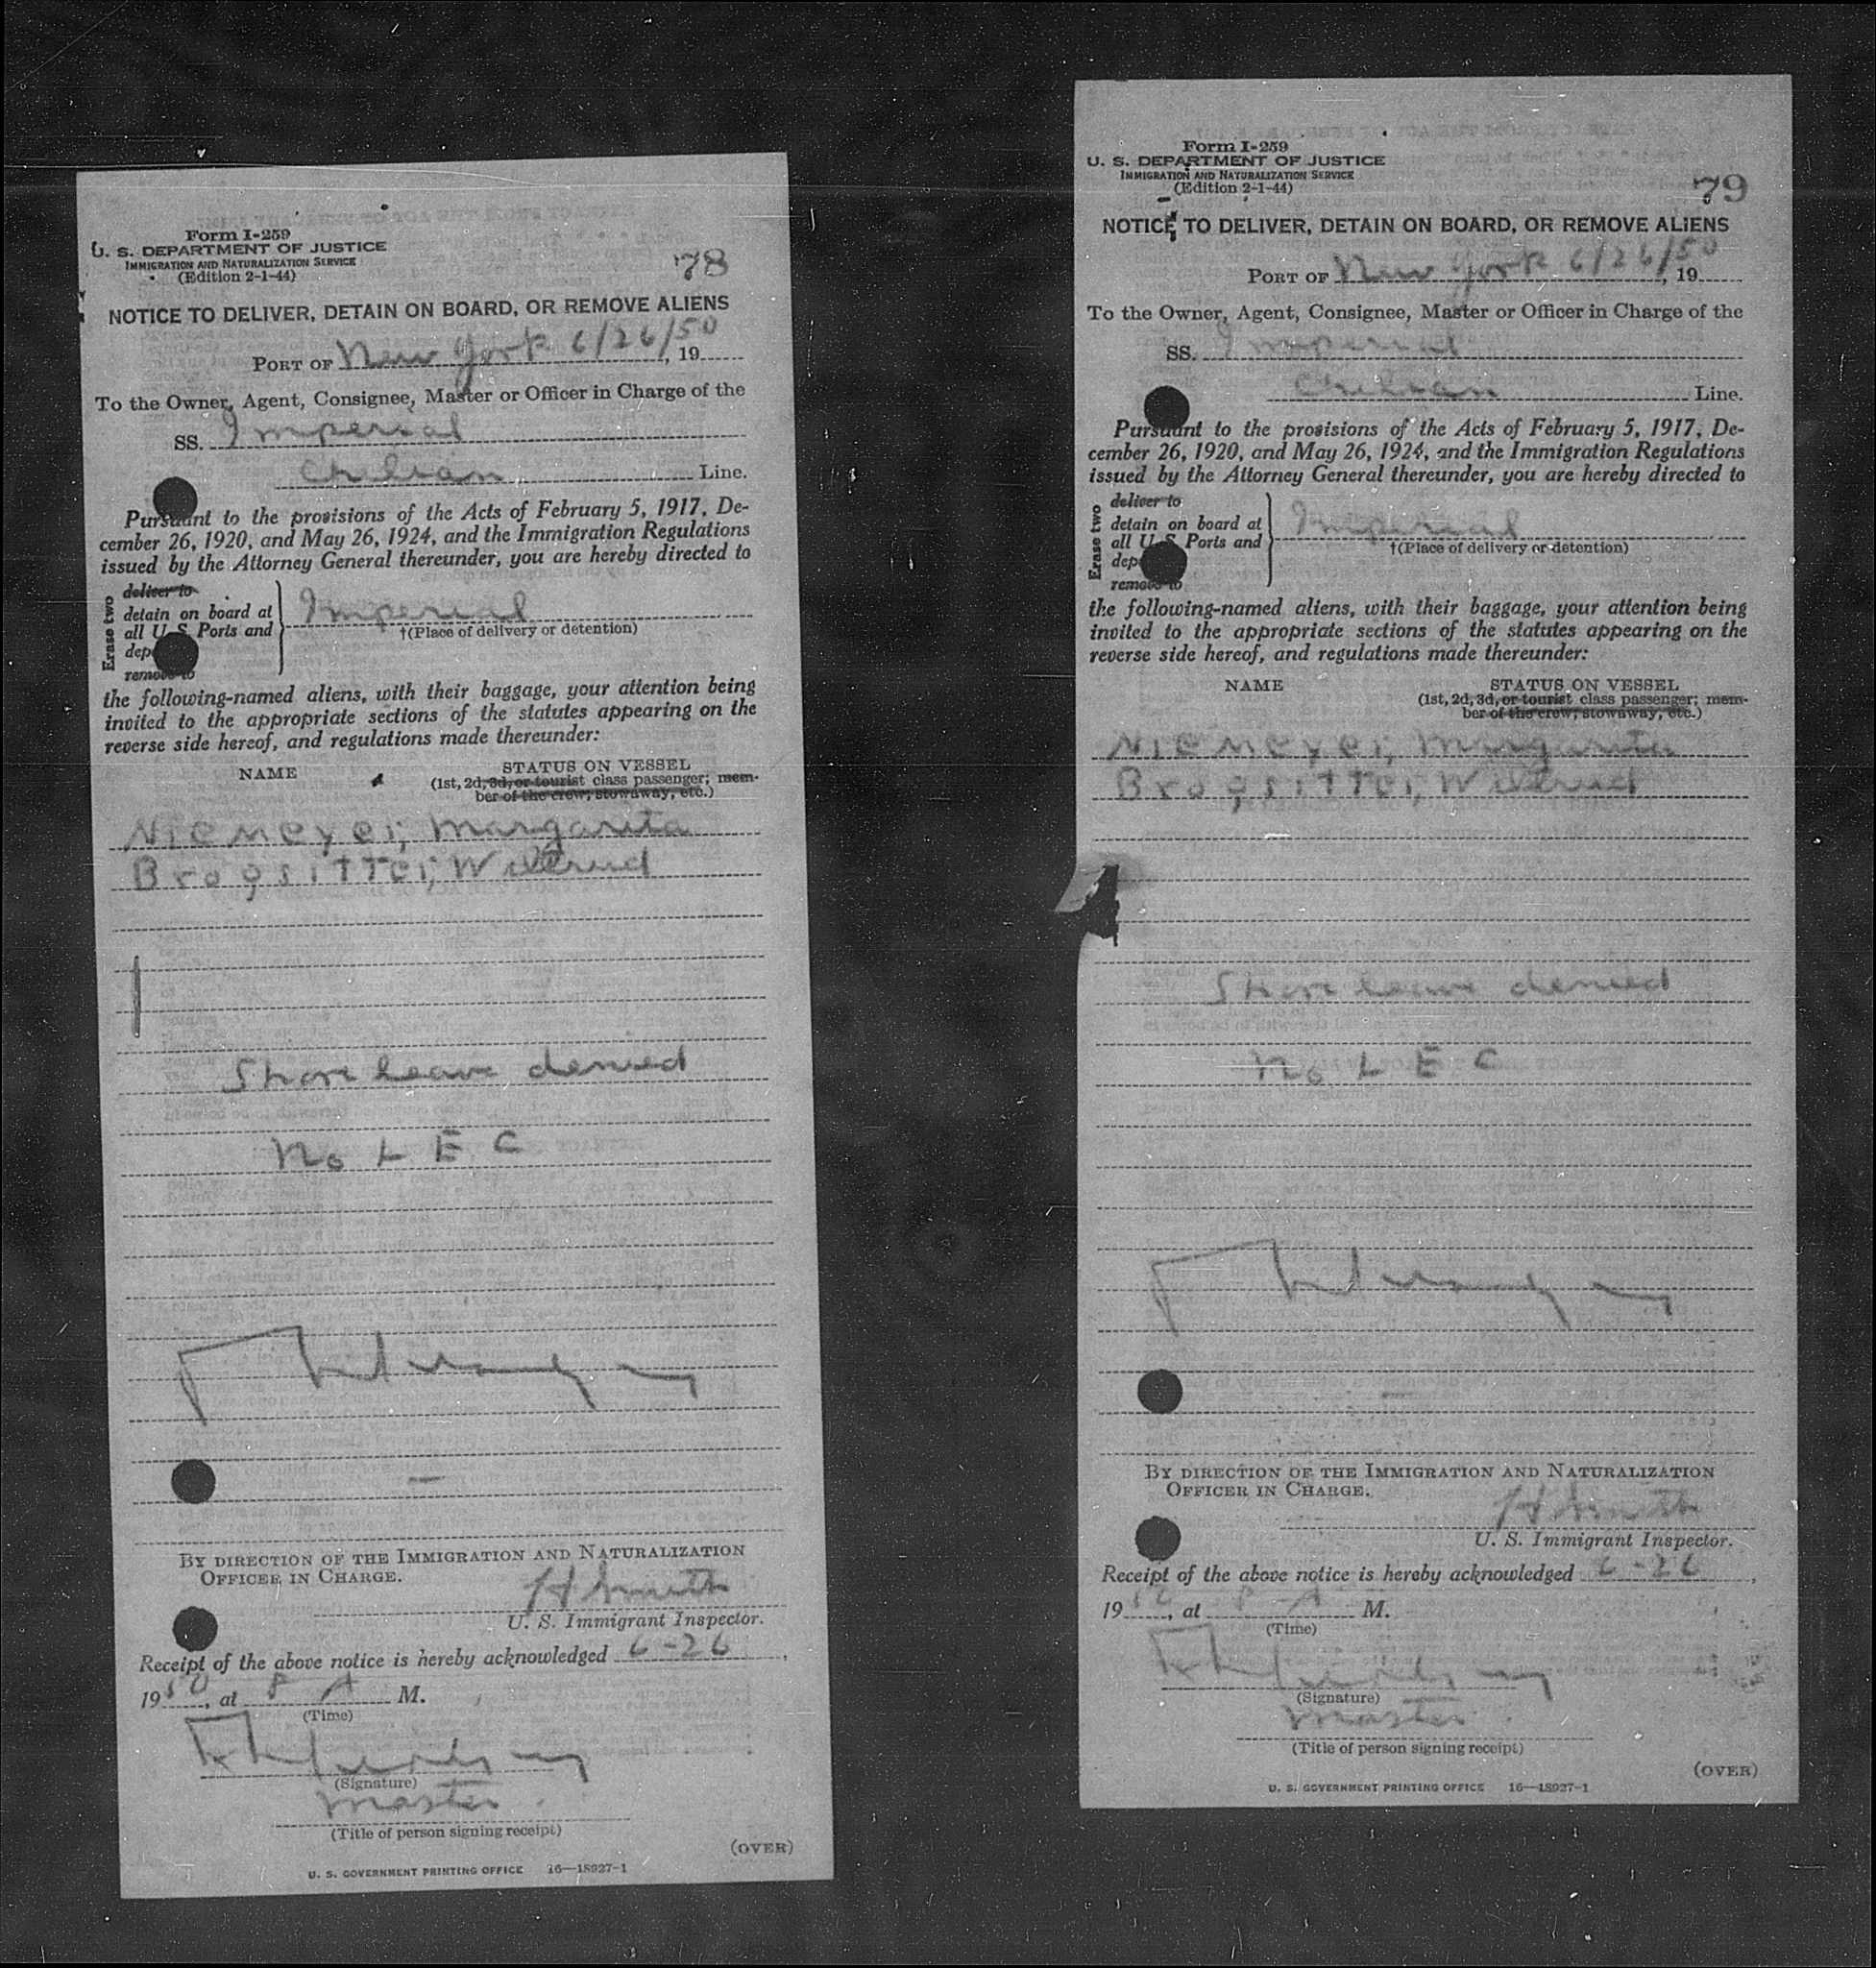 Form I-259
U. S. DEPARTMENT OF JUSTICE
IMMIGRATION AND NATURALIZATION SERVICE
(Edition 2-1-44)
78
NOTICE TO DELIVER, DETAIN ON BOARD, OR REMOVE ALIENS
PORT OF New York 6/26/50, 19
To the Owner, Agent, Consignee, Master or Officer in Charge of the
SS. Imperial
Chilean Line.
Pursuant to the provisions of the Acts of February 5, 1917, De-
cember 26, 1920, and May 26, 1924, and the Immigration Regulations
issued by the Attorney General thereunder, you are hereby directed to
Erase two
deliver to
detain on board at
all U. S. Ports and
dep
remove to
Imperial
†(Place of delivery or detention)
the following-named aliens, with their baggage, your attention being
invited to the appropriate sections of the statutes appearing on the
reverse side hereof, and regulations made thereunder:
NAME
STATUS ON VESSEL
(1st, 2d, 3d, or tourist class passenger; mem-
ber of the crew, stowaway, etc.)
Niemeyer, Margarita
Brogsitter, Wiltrud
Shore leave denied
No L E C
BY DIRECTION OF THE IMMIGRATION AND NATURALIZATION
OFFICER IN CHARGE.
H Smith
U. S. Immigrant Inspector.
Receipt of the above notice is hereby acknowledged 6-26,
1950, at 8 A M.
(Time)
(Signature)
Master
(Title of person signing receipt)
(OVER)
U. S. GOVERNMENT PRINTING OFFICE 16—18927-1
Form I-259
U. S. DEPARTMENT OF JUSTICE
IMMIGRATION AND NATURALIZATION SERVICE
(Edition 2-1-44)
79
NOTICE TO DELIVER, DETAIN ON BOARD, OR REMOVE ALIENS
PORT OF New York 6/26/50, 19
To the Owner, Agent, Consignee, Master or Officer in Charge of the
SS. Imperial
Chilean Line.
Pursuant to the provisions of the Acts of February 5, 1917, De-
cember 26, 1920, and May 26, 1924, and the Immigration Regulations
issued by the Attorney General thereunder, you are hereby directed to
Erase two
deliver to
detain on board at
all U. S. Ports and
dep
remove to
Imperial
†(Place of delivery or detention)
the following-named aliens, with their baggage, your attention being
invited to the appropriate sections of the statutes appearing on the
reverse side hereof, and regulations made thereunder:
NAME
STATUS ON VESSEL
(1st, 2d, 3d, or tourist class passenger; mem-
ber of the crew, stowaway, etc.)
Niemeyer, Margarita
Brogsitter, Wiltrud
Shore leave denied
No L E C
BY DIRECTION OF THE IMMIGRATION AND NATURALIZATION
OFFICER IN CHARGE.
H Smith
U. S. Immigrant Inspector.
Receipt of the above notice is hereby acknowledged 6-26,
1950, at 8 A M.
(Time)
(Signature)
Master
(Title of person signing receipt)
(OVER)
U. S. GOVERNMENT PRINTING OFFICE 16—18927-1